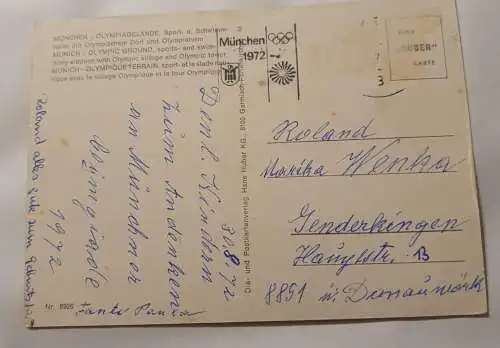 MÜNCHEN - OLYMPIAGELÄNDE, Sport- u. Schwimm-
halle mit Olympischem Dorf und Olympiaturm
MUNICH - OLYMPIC GROUND, sports- and swim-
ming-stadium with Olympic village and Olympic tower
MUNICH - OLYMPIQUETERRAIN, sport- et la stade nata-
tique avec le village Olympique et la tour Olympique
München
1972
KARTE
30.8.72
Den l. Kindern
zum Andenken
an Münchner
1972
Tante Paula
Roland alles Gute zum Geburtstag
Nr. 8926
Dia- und Postkartenverlag Hans Huber KG - 8100 Garmisch-
Roland
Marika Wenka
Genderkingen
Hauptstr. 13
8851 ü. Donauwörth